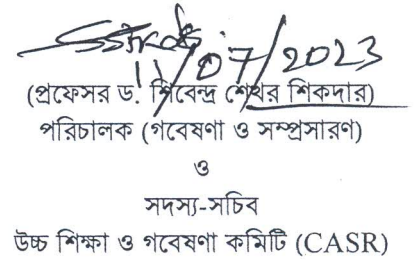 11/07/2023
(প্রফেসর ড. শিবেন্দ্র শেখর শিকদার)
পরিচালক (গবেষণা ও সম্প্রসারণ)
ও
সদস্য-সচিব
উচ্চ শিক্ষা ও গবেষণা কমিটি (CASR)